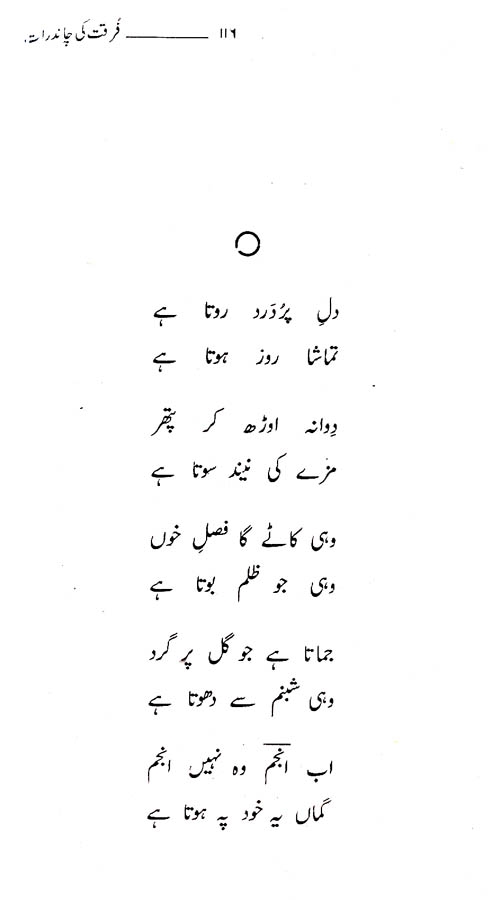 ۱۱۶ ــــــــــ فُرقت کی چاندرات
دلِ پُردَرد روتا ہے
تماشا روز ہوتا ہے
دِوانہ اوڑھ کر پتھر
مزے کی نیند سوتا ہے
وہی کاٹے گا فصلِ خوں
وہی جو ظلم بوتا ہے
جماتا ہے جو گل پر گرد
وہی شبنم سے دھوتا ہے
اب انجم وہ نہیں انجم
گماں یہ خود پہ ہوتا ہے